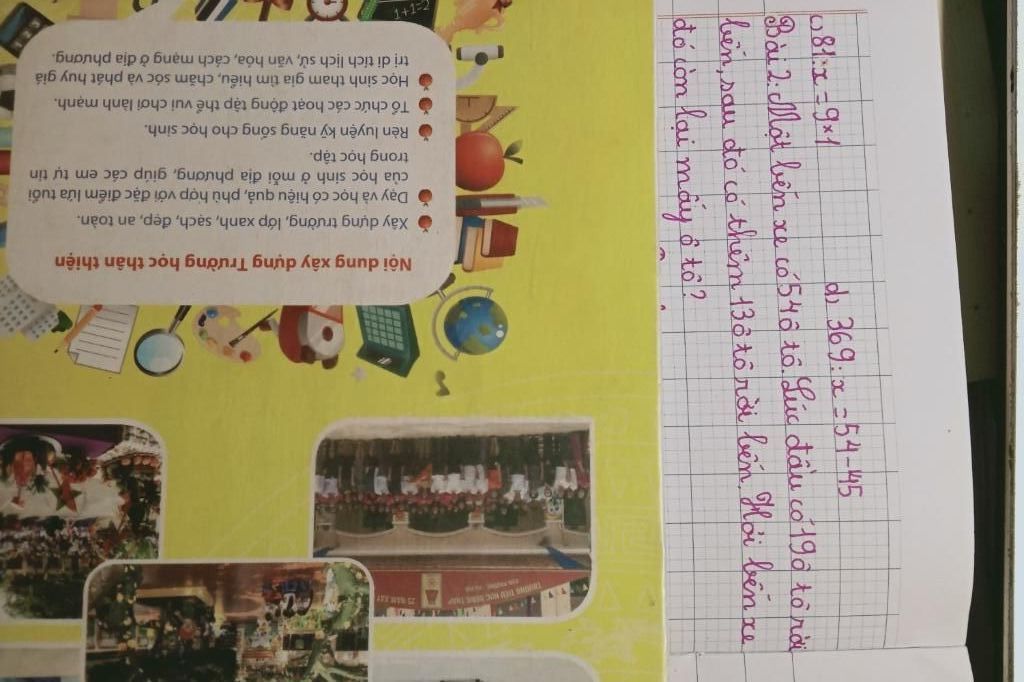 c, 81:x=9×1
d, 369:x=54-45
Bài 2: Một bến xe có 54 ô tô. Lúc đầu có 19 ô tô rời
bến, sau đó có thêm 13 ô tô rời bến. Hỏi bến xe
đó còn lại mấy ô tô?
Nội dung xây dựng Trường học thân thiện
Xây dựng trường, lớp xanh, sạch, đẹp, an toàn.
Dạy và học có hiệu quả, phù hợp với đặc điểm lứa tuổi
của học sinh ở mỗi địa phương, giúp các em tự tin
trong học tập.
Rèn luyện kỹ năng sống cho học sinh.
Tổ chức các hoạt động tập thể vui chơi lành mạnh.
Học sinh tham gia tìm hiểu, chăm sóc và phát huy giá
trị di tích lịch sử, văn hóa, cách mạng ở địa phương.
1+1=2